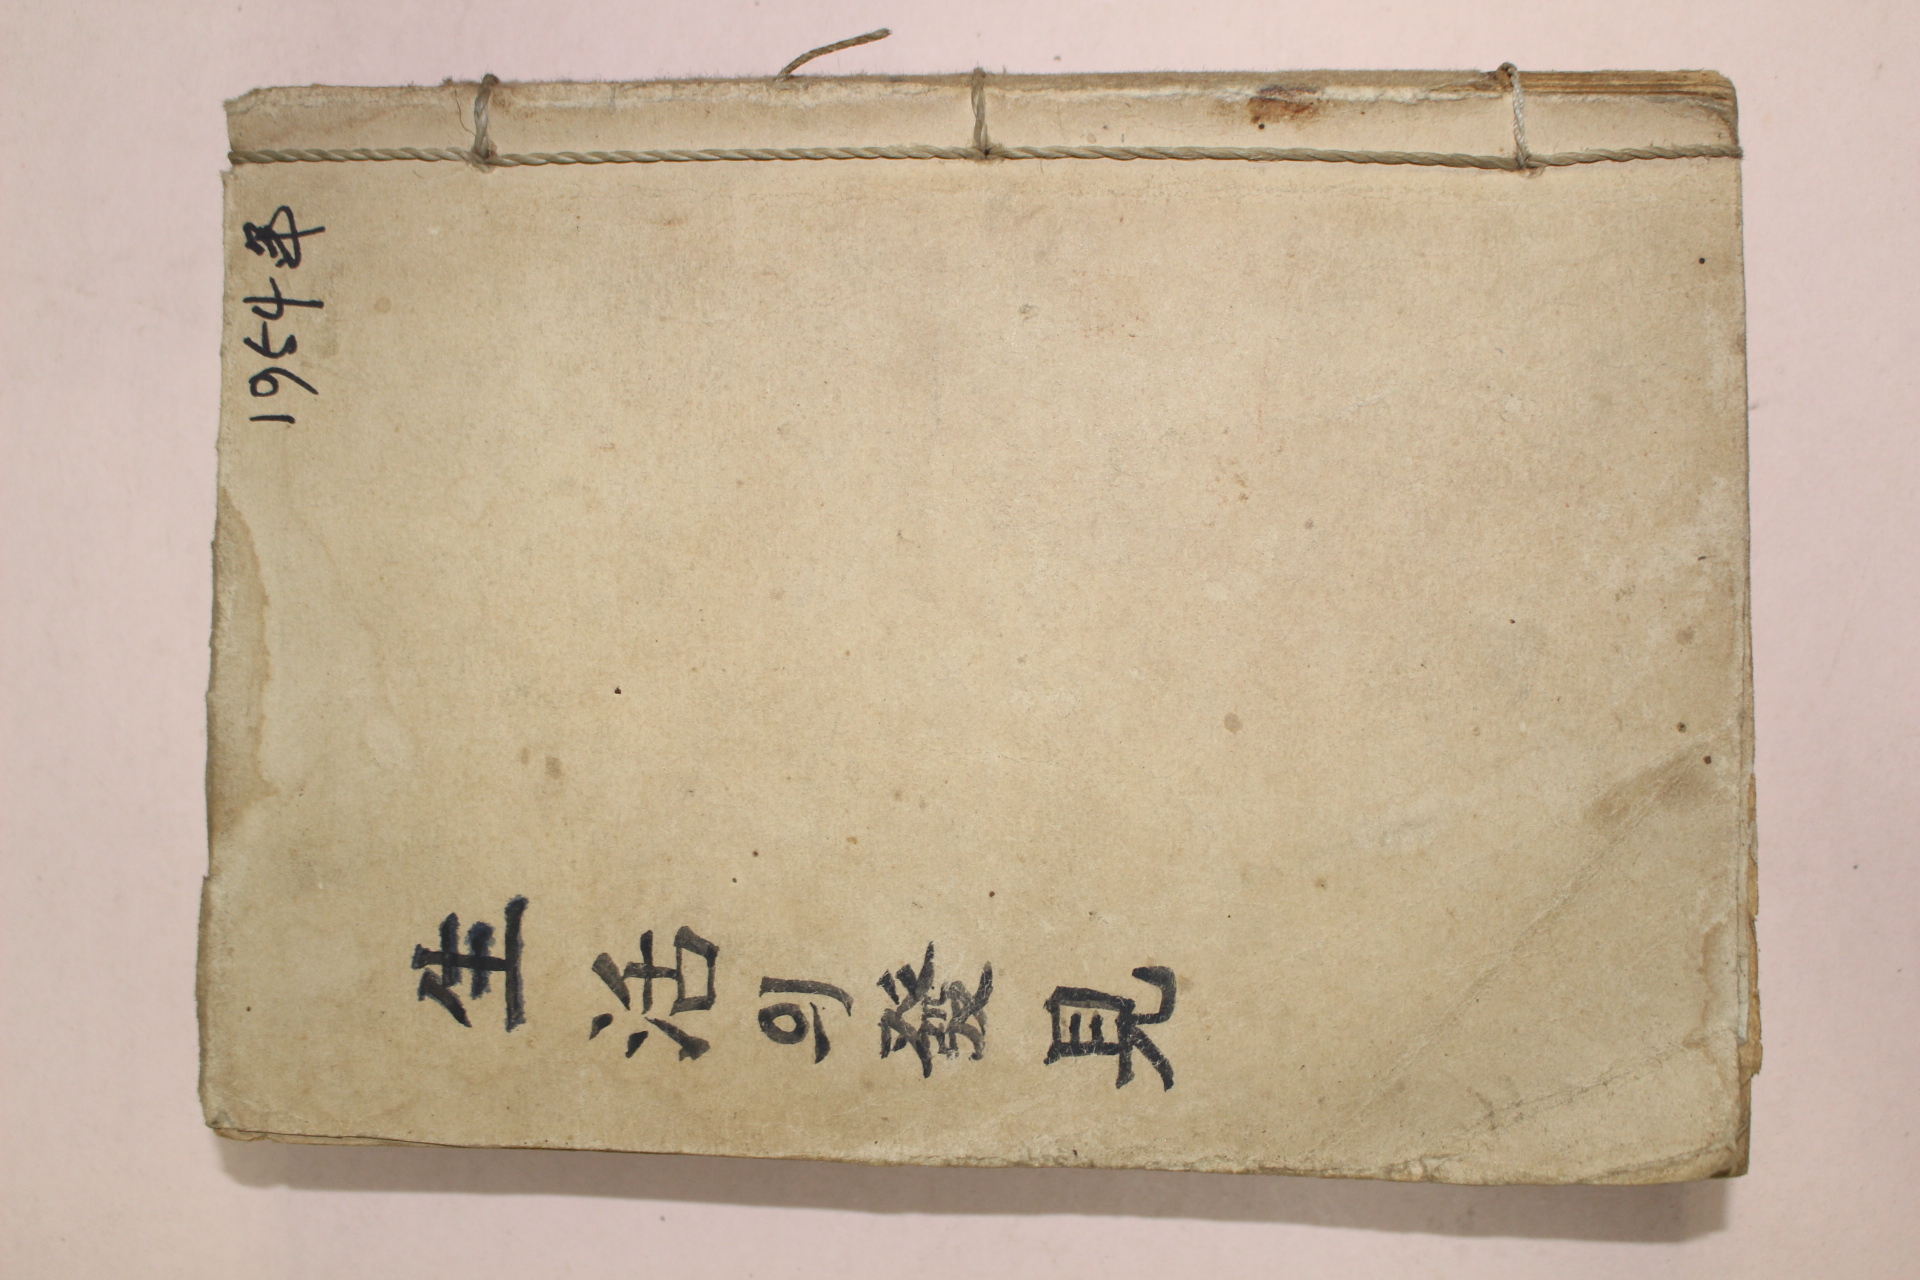 1954年
生活의發見